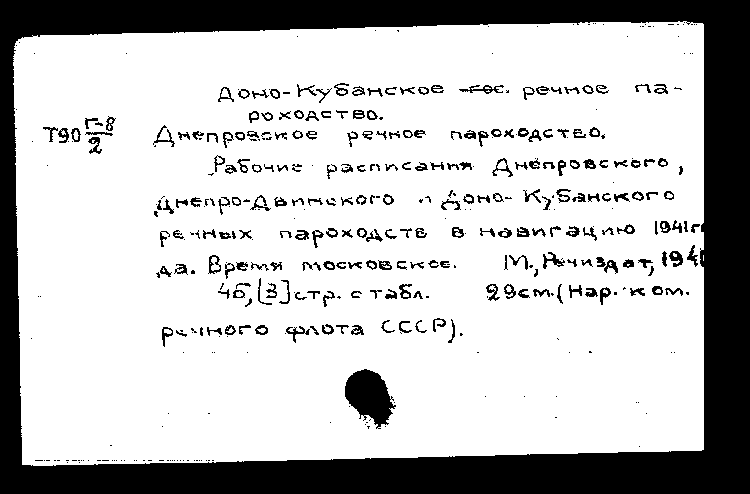 Доно-Кубанское гос. речное па-
роходство.
Т90 Г-8/2 Днепровское речное пароходство.
Рабочие расписания Днепровского,
Днепро-Двинского и Доно-Кубанского
речных пароходств в навигацию 1941 го
да. Время московское. М., Речиздат, 194
46, [3] стр. с табл. 29 см. (Нар. ком.
речного флота СССР).